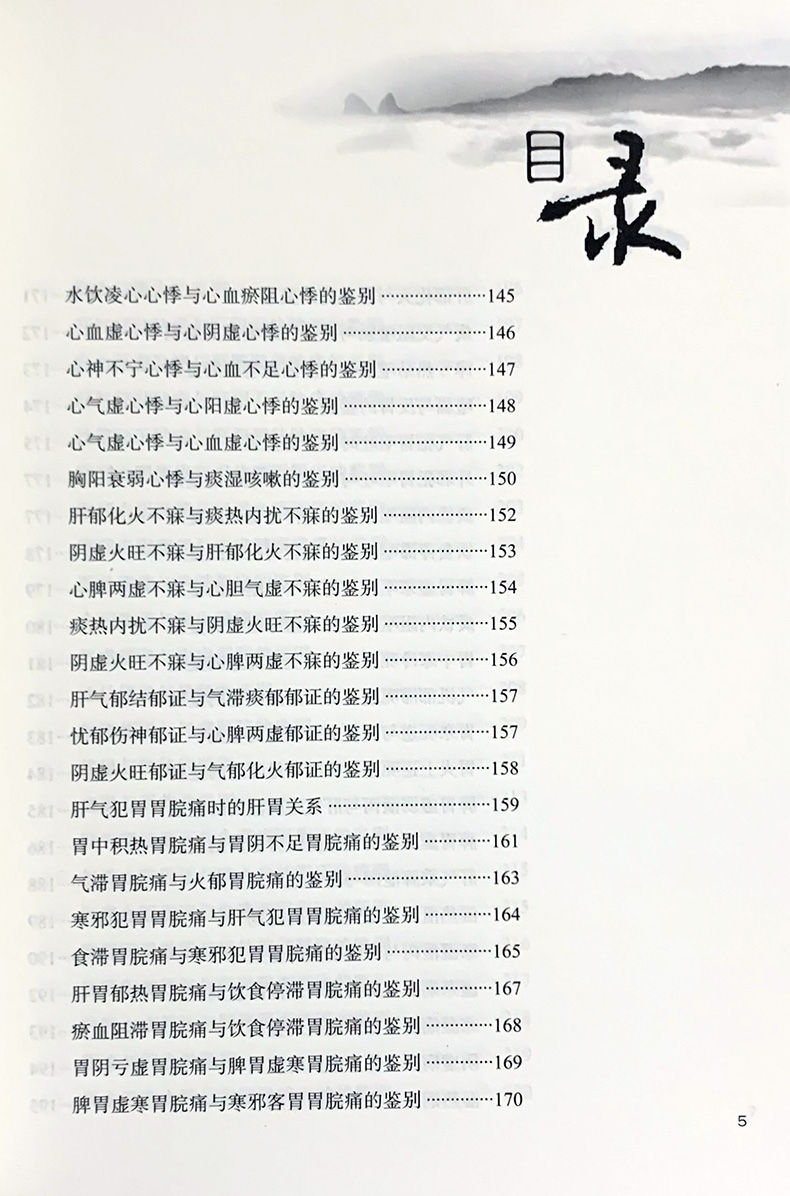 目录
水饮凌心心悸与心血瘀阻心悸的鉴别·····················145
心血虚心悸与心阴虚心悸的鉴别·····························146
心神不宁心悸与心血不足心悸的鉴别·····················147
心气虚心悸与心阳虚心悸的鉴别·····························148
心气虚心悸与心血虚心悸的鉴别·····························149
胸阳衰弱心悸与痰湿咳嗽的鉴别·····························150
肝郁化火不寐与痰热内扰不寐的鉴别·····················152
阴虚火旺不寐与肝郁化火不寐的鉴别·····················153
心脾两虚不寐与心胆气虚不寐的鉴别·····················154
痰热内扰不寐与阴虚火旺不寐的鉴别·····················155
阴虚火旺不寐与心脾两虚不寐的鉴别·····················156
肝气郁结郁证与气滞痰郁郁证的鉴别·····················157
忧郁伤神郁证与心脾两虚郁证的鉴别·····················157
阴虚火旺郁证与气郁化火郁证的鉴别·····················158
肝气犯胃胃脘痛时的肝胃关系································159
胃中积热胃脘痛与胃阴不足胃脘痛的鉴别·············161
气滞胃脘痛与火郁胃脘痛的鉴别····························163
寒邪犯胃胃脘痛与肝气犯胃胃脘痛的鉴别·············164
食滞胃脘痛与寒邪犯胃胃脘痛的鉴别·····················165
肝胃郁热胃脘痛与饮食停滞胃脘痛的鉴别·············167
瘀血阻滞胃脘痛与饮食停滞胃脘痛的鉴别·············168
胃阴亏虚胃脘痛与脾胃虚寒胃脘痛的鉴别·············169
脾胃虚寒胃脘痛与寒邪客胃胃脘痛的鉴别·············170
5